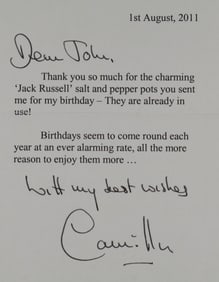 1st August, 2011
Dear John,
Thank you so much for the charming
'Jack Russell' salt and pepper pots you sent
me for my birthday – They are already in
use!
Birthdays seem to come round each
year at an ever alarming rate, all the more
reason to enjoy them more ...
with my best wishes
Camilla